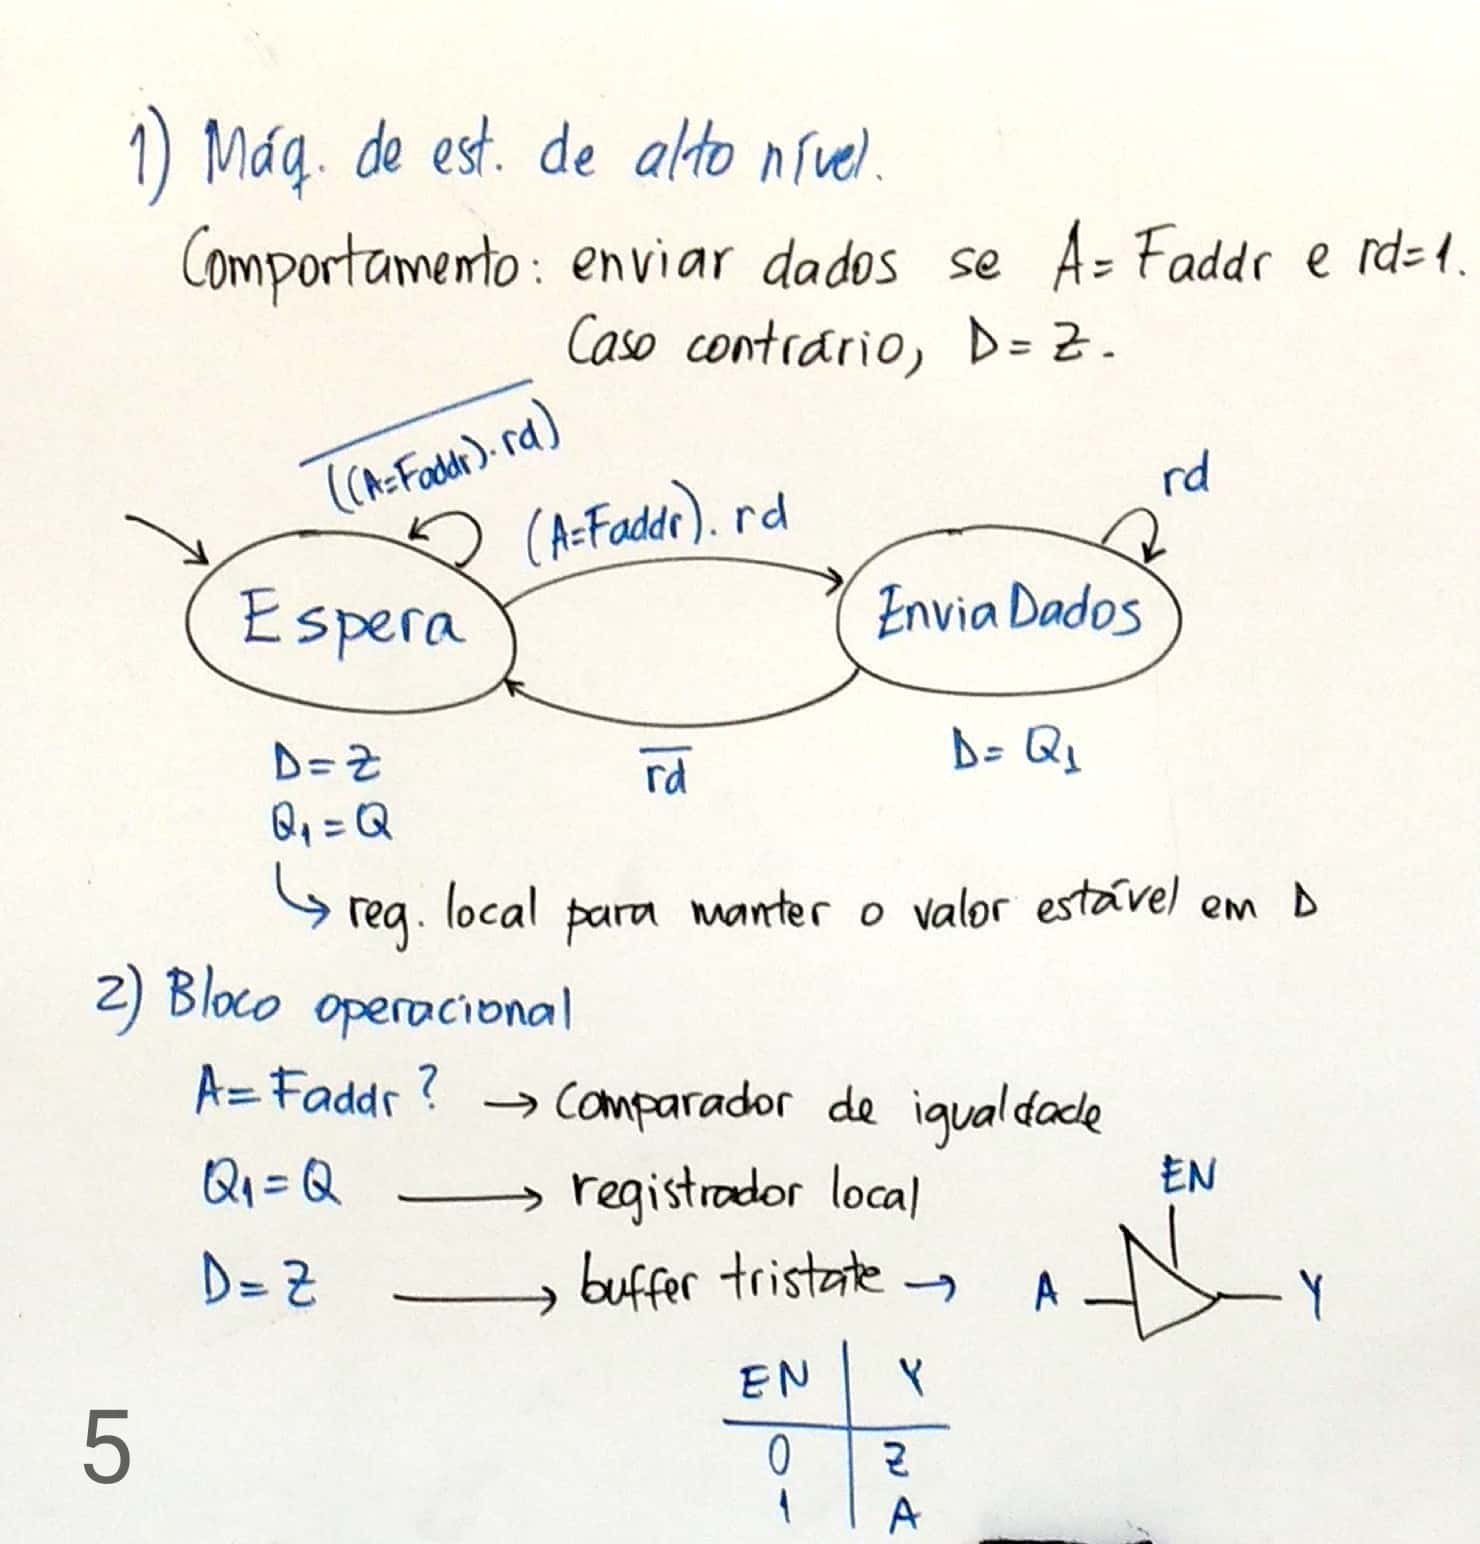 1) Máq. de est. de alto nível.
Comportamento: enviar dados se A=Faddr e rd=1.
Caso contrário, D=Z.
((A=Faddr).rd)
(A=Faddr).rd
rd
Espera
EnviaDados
D=Z
Q1=Q
rd
D=Q1
↳ reg. local para manter o valor estável em D
2) Bloco operacional
A=Faddr? → Comparador de igualdade
Q1=Q → registrador local
D=Z → buffer tristate →
EN
A
Y
EN Y
0 Z
1 A
5